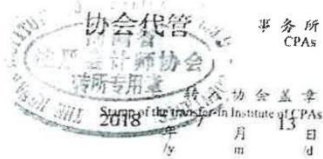 协会代管
事务所
CPAs
注册会计师协会
转所专用章
转所协会盖章
Stamp of the transfer-in Institute of CPAs
2018 年 7 月 13 日
/y /m /d